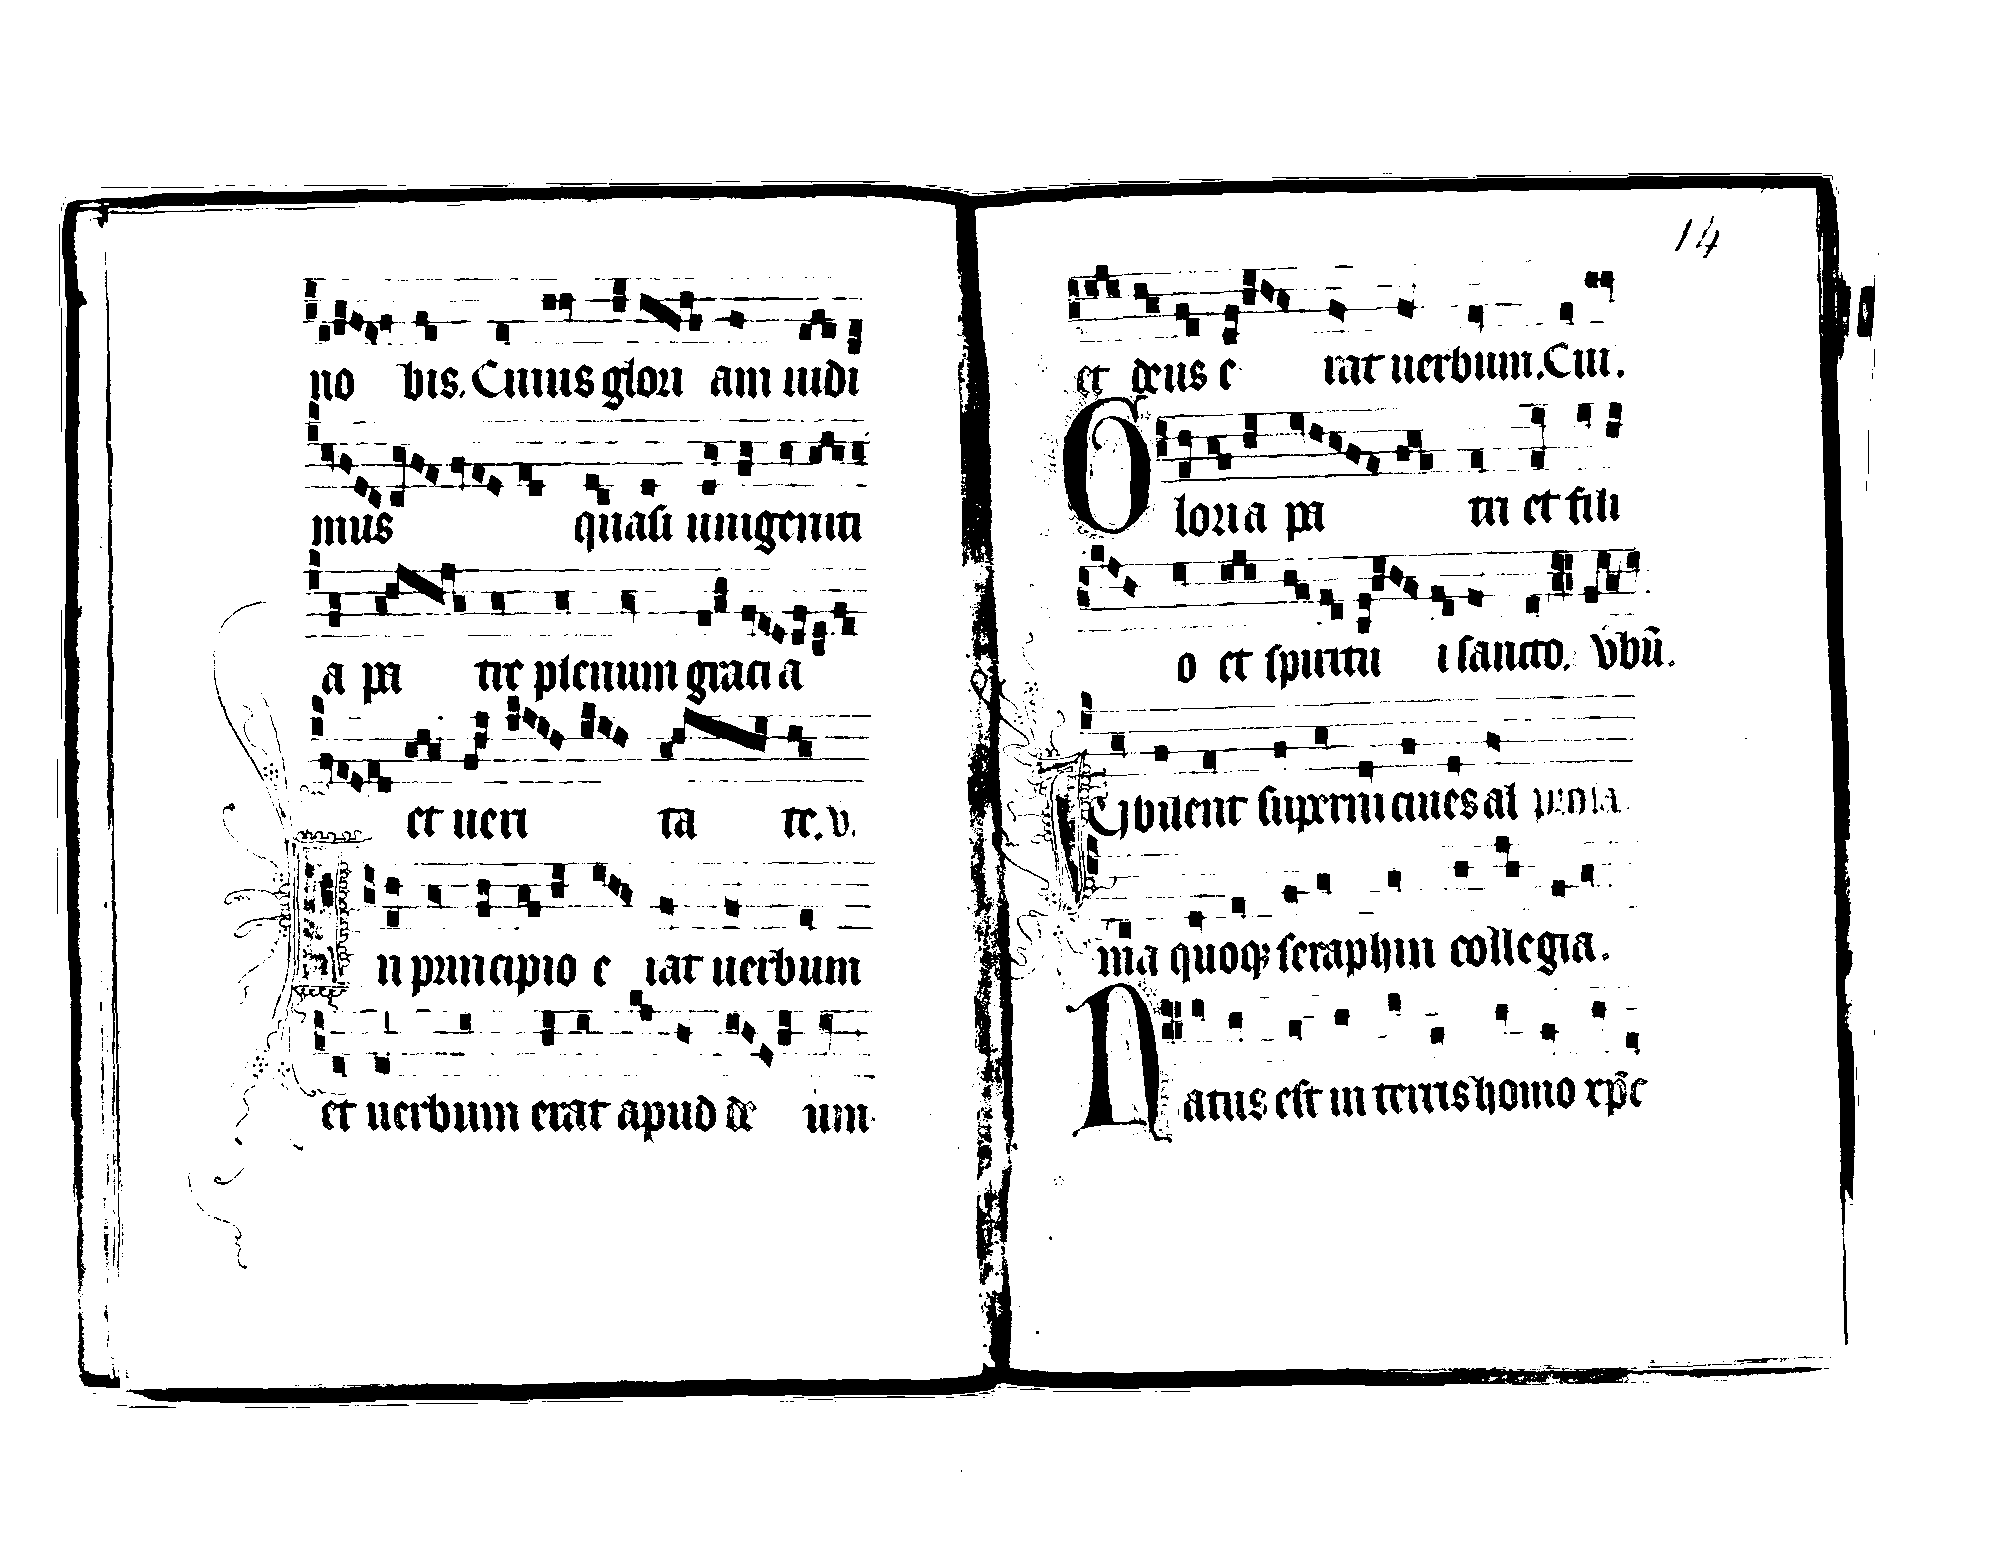 no bis. Cuius glori am uidi
mus quasi unigeniti
a pa tre plenum gracia
et ueri ta te. v.
In principio e rat uerbum
et uerbum erat apud de um
14
et deus e rat uerbum. Cui.
Gloria pa tri et fili
o et spiritu i sancto. Vbū.
Iubilent superni ciues al
ma quoq; seraphin collegia.
Natus est in terris homo xp̄c